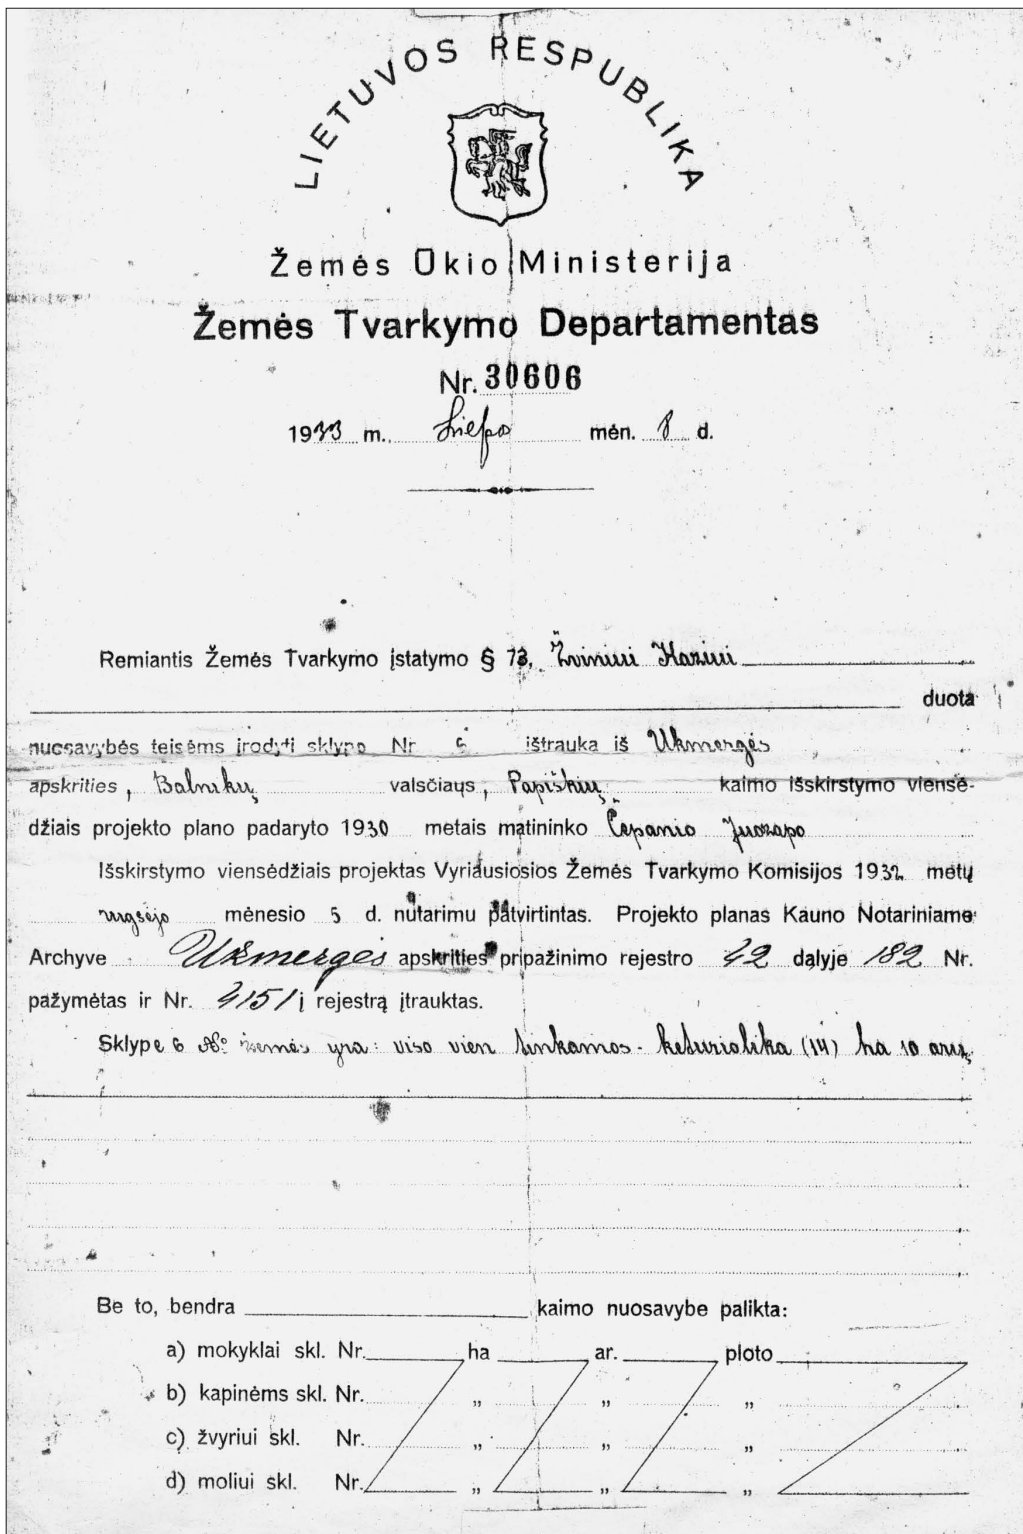 LIETUVOS RESPUBLIKA
Žemės Ūkio Ministerija
Žemės Tvarkymo Departamentas
Nr. 30606
1933 m. Liepos mėn. 8 d.
Remiantis Žemės Tvarkymo įstatymo § 73, Žvinui Kaziui
duota
nuosavybės teisėms įrodyti sklypo Nr 6 ištrauka iš Ukmergės
apskrities, Balnikų valsčiaus, Papiškių kaimo išskirstymo viensė-
džiais projekto plano padaryto 1930 metais matininko Čepanio Juozapo
Išskirstymo viensėdžiais projektas Vyriausiosios Žemės Tvarkymo Komisijos 1932 metų
rugsėjo mėnesio 5 d. nutarimu patvirtintas. Projekto planas Kauno Notariniame
Archyve Ukmergės apskrities pripažinimo rejestro 42 dalyje 182 Nr.
pažymėtas ir Nr. 4151 į rejestrą įtrauktas.
Sklype 6 № žemės yra: viso vien tinkamos - keturiolika (14) ha 10 arų.
Be to, bendra kaimo nuosavybe palikta:
a) mokyklai skl. Nr. ha ar. ploto
b) kapinėms skl. Nr. „ „ „
c) žvyriui skl. Nr. „ „ „
d) moliui skl. Nr. „ „ „